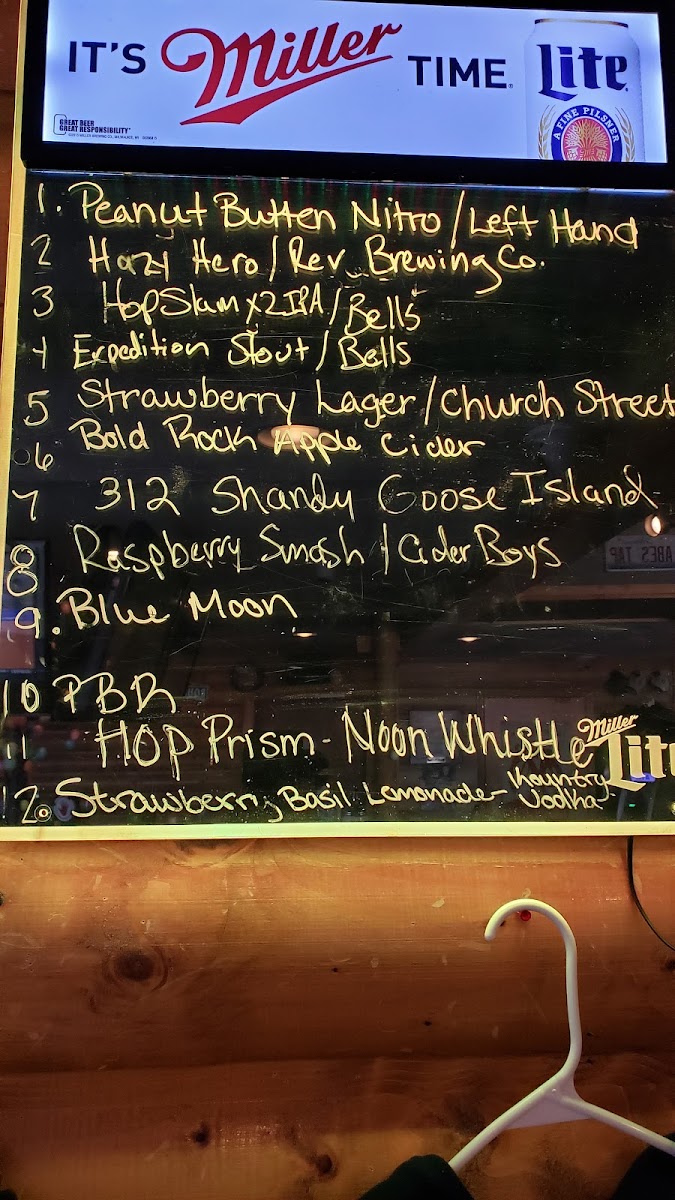 IT'S Miller TIME. Lite
GREAT BEER
GREAT RESPONSIBILITY
A FINE PILSNER
1. Peanut Butter Nitro / Left Hand
2 Hazy Hero / Rev Brewing Co.
3 HopSlam x2IPA / Bells
4 Expedition Stout / Bells
5 Strawberry Lager / Church Street
6 Bold Rock Apple Cider
7 312 Shandy Goose Island
8 Raspberry Smash / Cider Boys
9. Blue Moon
10 PBR
11 HOP Prism - Noon Whistle
Miller Lite
12. Strawberry Basil Lemonade - Kountry Vodka